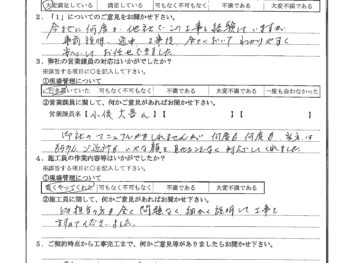 大変満足している 満足している 可も不可もなく 不満である 大変不満である
2.「1」についてのご意見をお聞かせ下さい。
今までに何度か他社でこの工事を経験していますが
事前説明、途中、工事後、全てにおいてわかりやすく
安心してお任せできました
3. 弊社の営業課員の対応はいかがでしたか?
※該当する項目に○を記入して下さい。
①現場管理について
行き届いていた 可も不可もなく 不満である 大変不満である 一度も会わなかった
②営業課員に関して、何かご意見があればお聞かせ下さい。
営業課員名【小俣 大吾さん】【 】【 】
御社のマニュアルかもしれませんが 何度も何度も
いやな顔を見せることなく対応してくれました。
4. 施工員の作業内容等はいかがでしたか?
※該当する項目に○を記入して下さい。
①現場管理について
良くやってくれた 可も不可もなく 不満である 大変不満である
②施工員に関して、何かご意見があればお聞かせ下さい。
担当の方も全く問題なく細かく説明して工事を
すすめてくださいました。
5. ご契約時点から工事完工まで、何かご意見等がありましたらお聞かせ下さい。